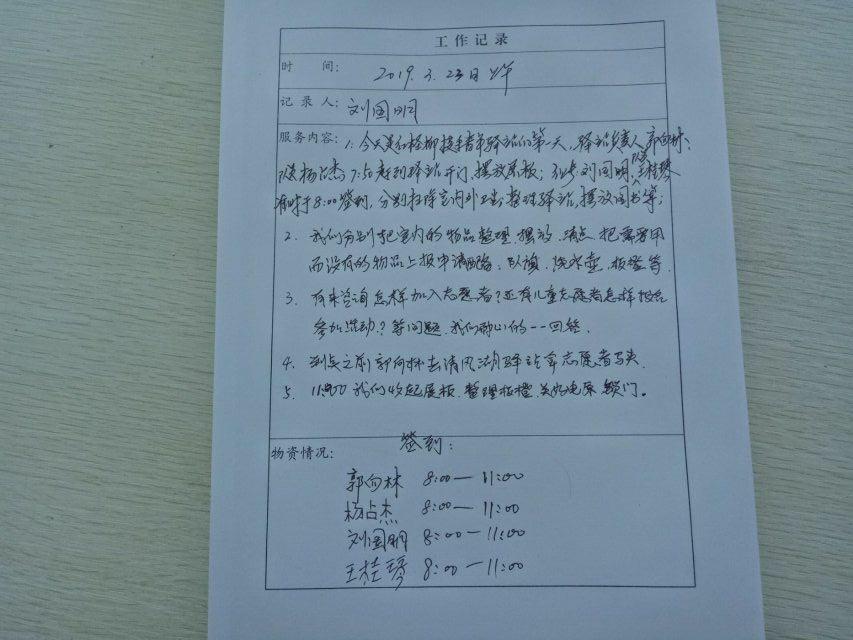 工作记录
时 间: 2019.3.23日上午
记录人: 刘国明
服务内容: 1: 今天是红柽柳接手青年驿站的第一天, 驿站负责人郭向林、
队员杨占杰, 7:50赶到驿站开门, 摆放展板; 刘国明, 队员王桂琴
准时于8:00签到, 分别打扫室内外卫生, 整理驿站, 摆放图书等;
2. 我们分别把室内的物品整理、摆放、清点, 把需要用
而没有的物品上报申请配备, 队旗、热水壶、板凳等.
3. 有来咨询怎样加入志愿者? 还有儿童志愿者怎样报名
参加活动? 等问题, 我们耐心的一一回答.
4. 到点之前郭向林去清风湖驿站拿志愿者马夹.
5. 11:00 我们收起展板、整理板橙、关好电源 锁门。
物资情况: 签到:
郭向林 8:00—11:00
杨占杰 8:00—11:00
刘国明 8:00—11:00
王桂琴 8:00—11:00